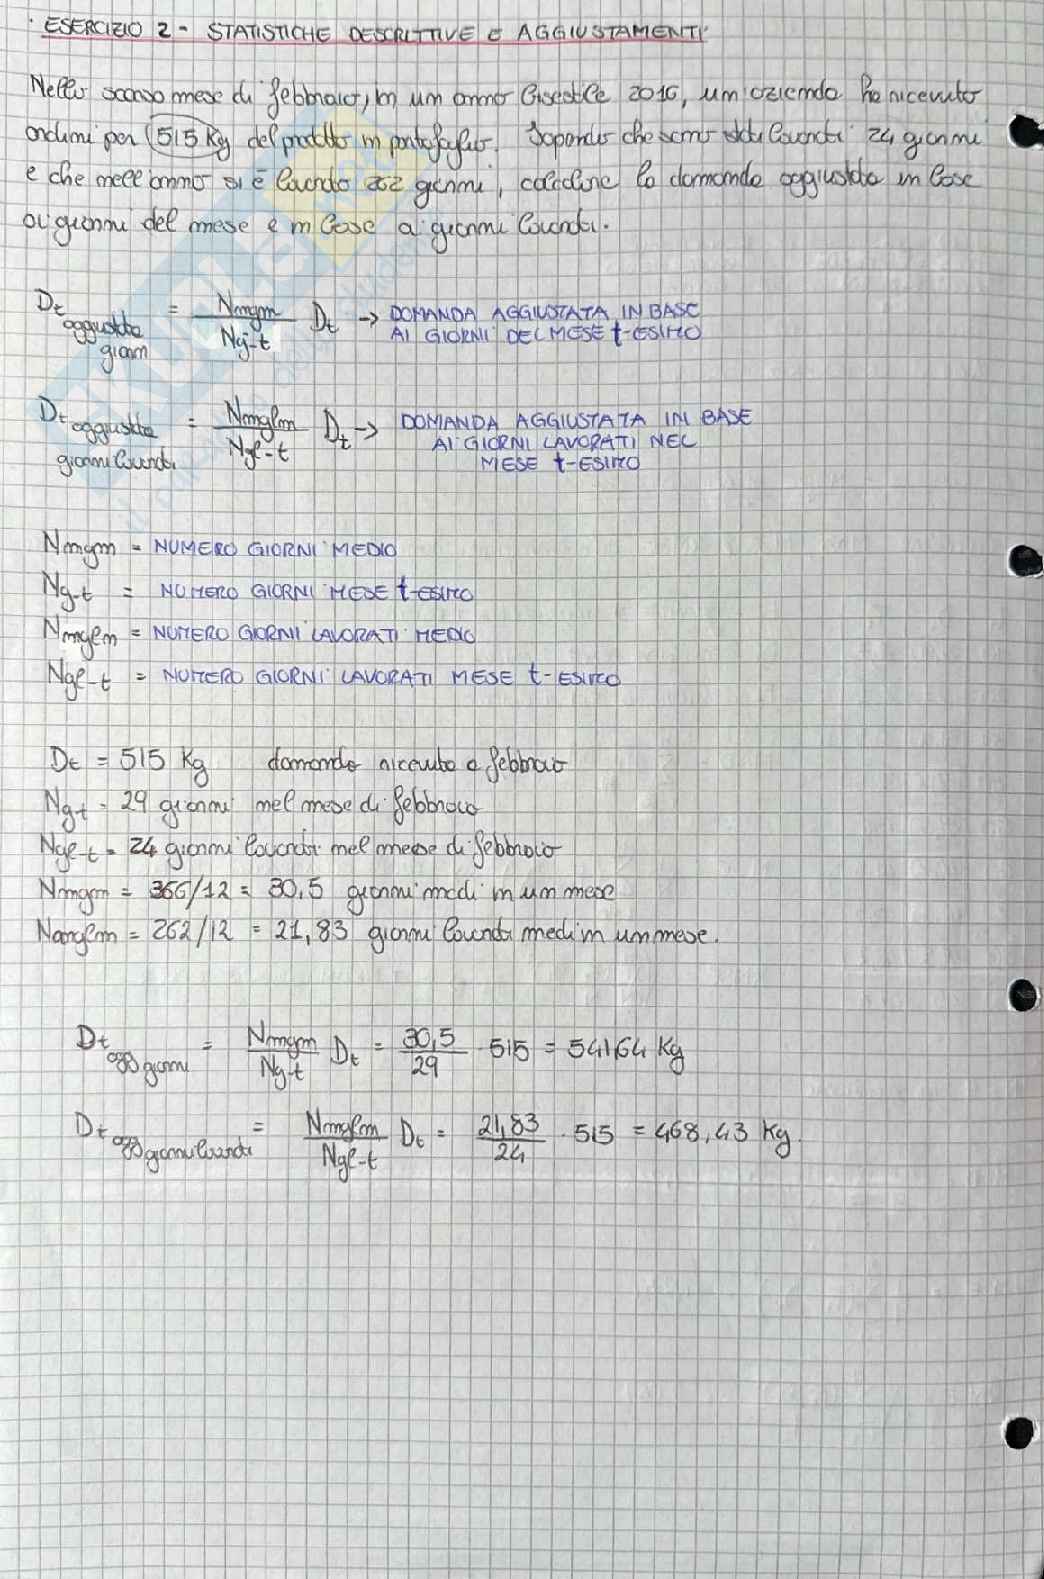 ESERCIZIO 2 - STATISTICHE DESCRITTIVE E AGGIUSTAMENTI
Nello scorso mese di febbraio, in un anno bisestile 2016, un'azienda ha ricevuto
ordini per 515 Kg del prodotto in portafoglio. Sapendo che sono stati lavorati 24 giorni
e che nell'anno si è lavorato 262 giorni, calcolare la domanda aggiustata in base
ai giorni del mese e in base ai giorni lavorati.
Dt aggiustata giorni = Nmgm / Ng-t Dt → DOMANDA AGGIUSTATA IN BASE
AI GIORNI DEL MESE t-ESIMO
Dt aggiustata giorni lavorati = Nmglm / Ngl-t Dt → DOMANDA AGGIUSTATA IN BASE
AI GIORNI LAVORATI NEL
MESE t-ESIMO
Nmgm = NUMERO GIORNI MEDIO
Ng-t = NUMERO GIORNI MESE t-ESIMO
Nmglm = NUMERO GIORNI LAVORATI MEDIO
Ngl-t = NUMERO GIORNI LAVORATI MESE t-ESIMO
Dt = 515 Kg domanda ricevuta a febbraio
Ng-t = 29 giorni nel mese di febbraio
Ngl-t = 24 giorni lavorati nel mese di febbraio
Nmgm = 366/12 = 30,5 giorni medi in un mese
Nmglm = 262/12 = 21,83 giorni lavorati medi in un mese.
Dt agg giorni = Nmgm / Ng-t Dt = 30,5 / 29 · 515 = 541,64 Kg
Dt agg giorni lavorati = Nmglm / Ngl-t Dt = 21,83 / 24 · 515 = 468,43 Kg.